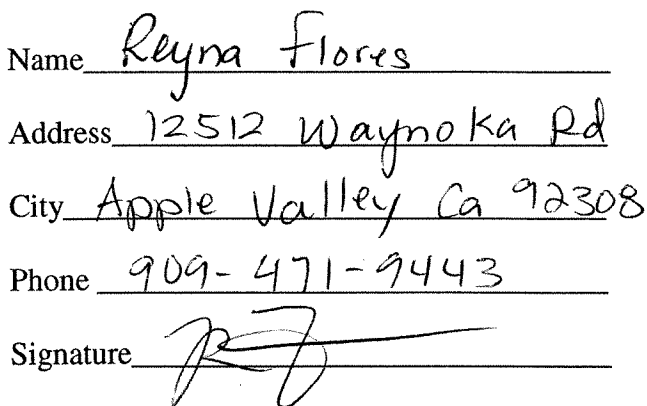 Name Reyna Flores
Address 12512 Waynoka Rd
City Apple Valley Ca 92308
Phone 909-471-9443
Signature